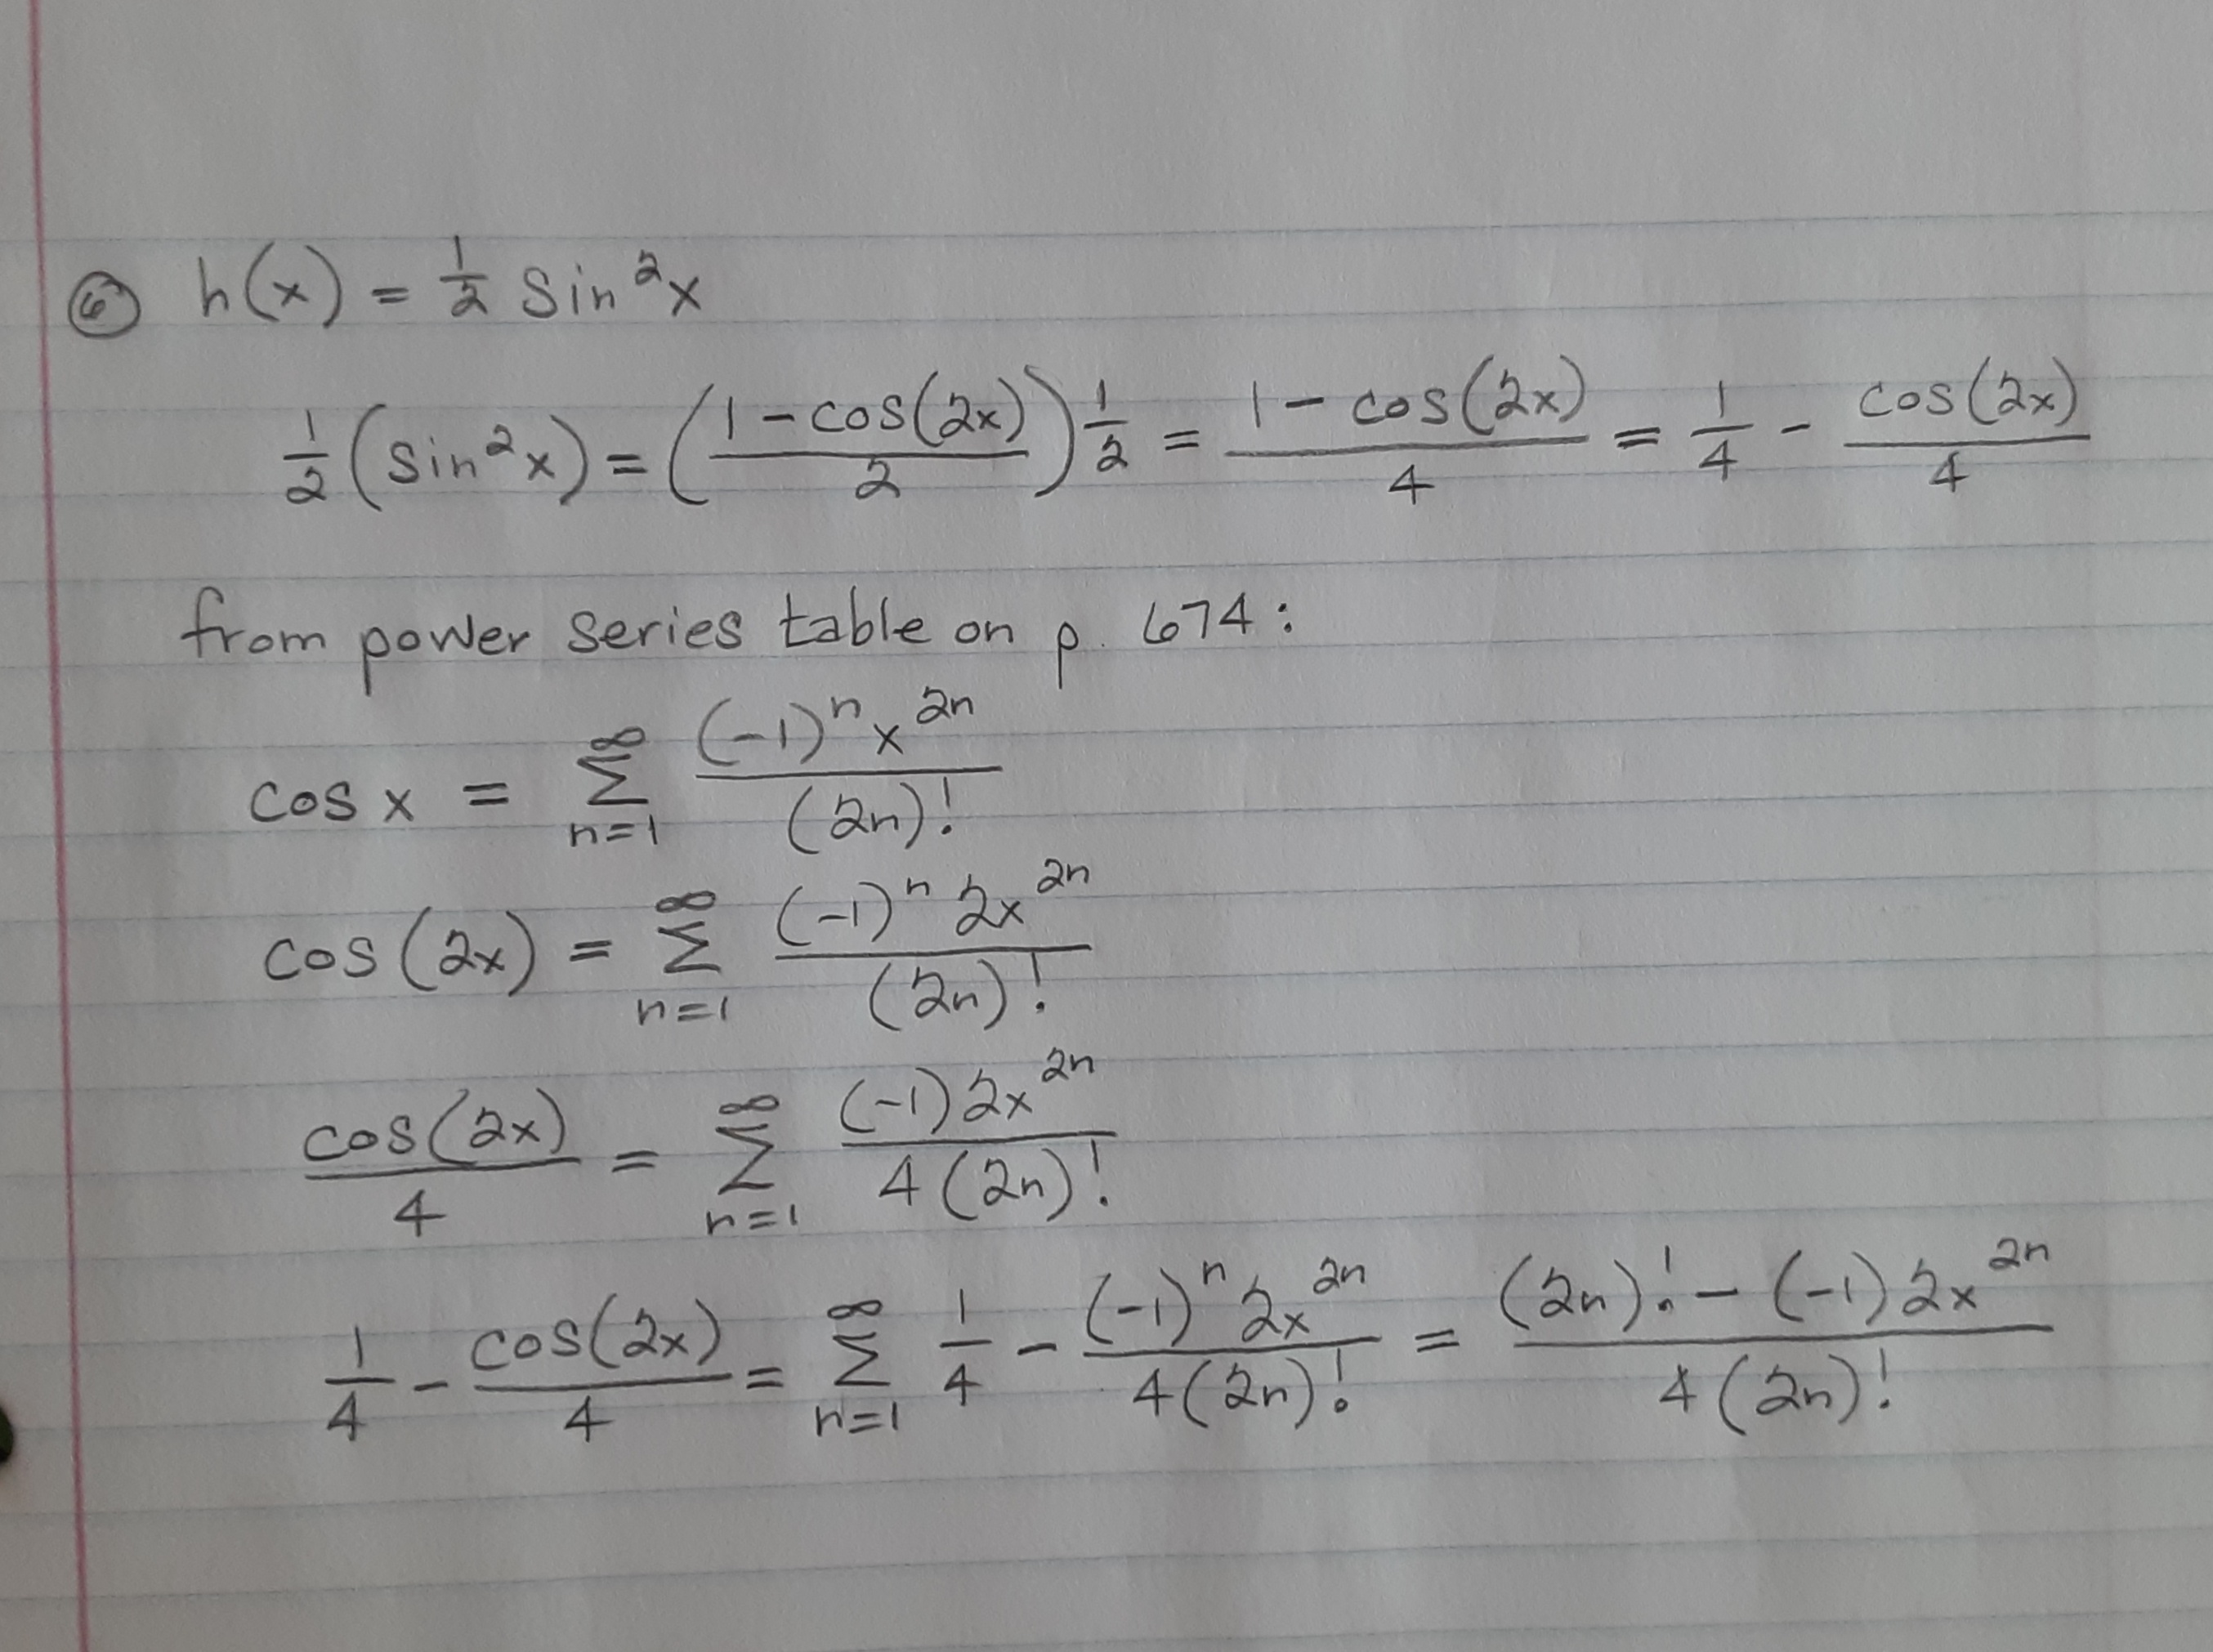 ⑥ h(x) = 1/2 sin²x
1/2 (sin²x) = ((1 - cos(2x))/2) 1/2 = (1 - cos(2x))/4 = 1/4 - cos(2x)/4
from power series table on p. 674:
cos x = ∑_{n=1}^{∞} ((-1)^n x^{2n})/((2n)!)
cos(2x) = ∑_{n=1}^{∞} ((-1)^n 2x^{2n})/((2n)!)
cos(2x)/4 = ∑_{n=1}^{∞} ((-1) 2x^{2n})/(4(2n)!)
1/4 - cos(2x)/4 = ∑_{n=1}^{∞} 1/4 - ((-1)^n 2x^{2n})/(4(2n)!) = ((2n)! - (-1) 2x^{2n})/(4(2n)!)